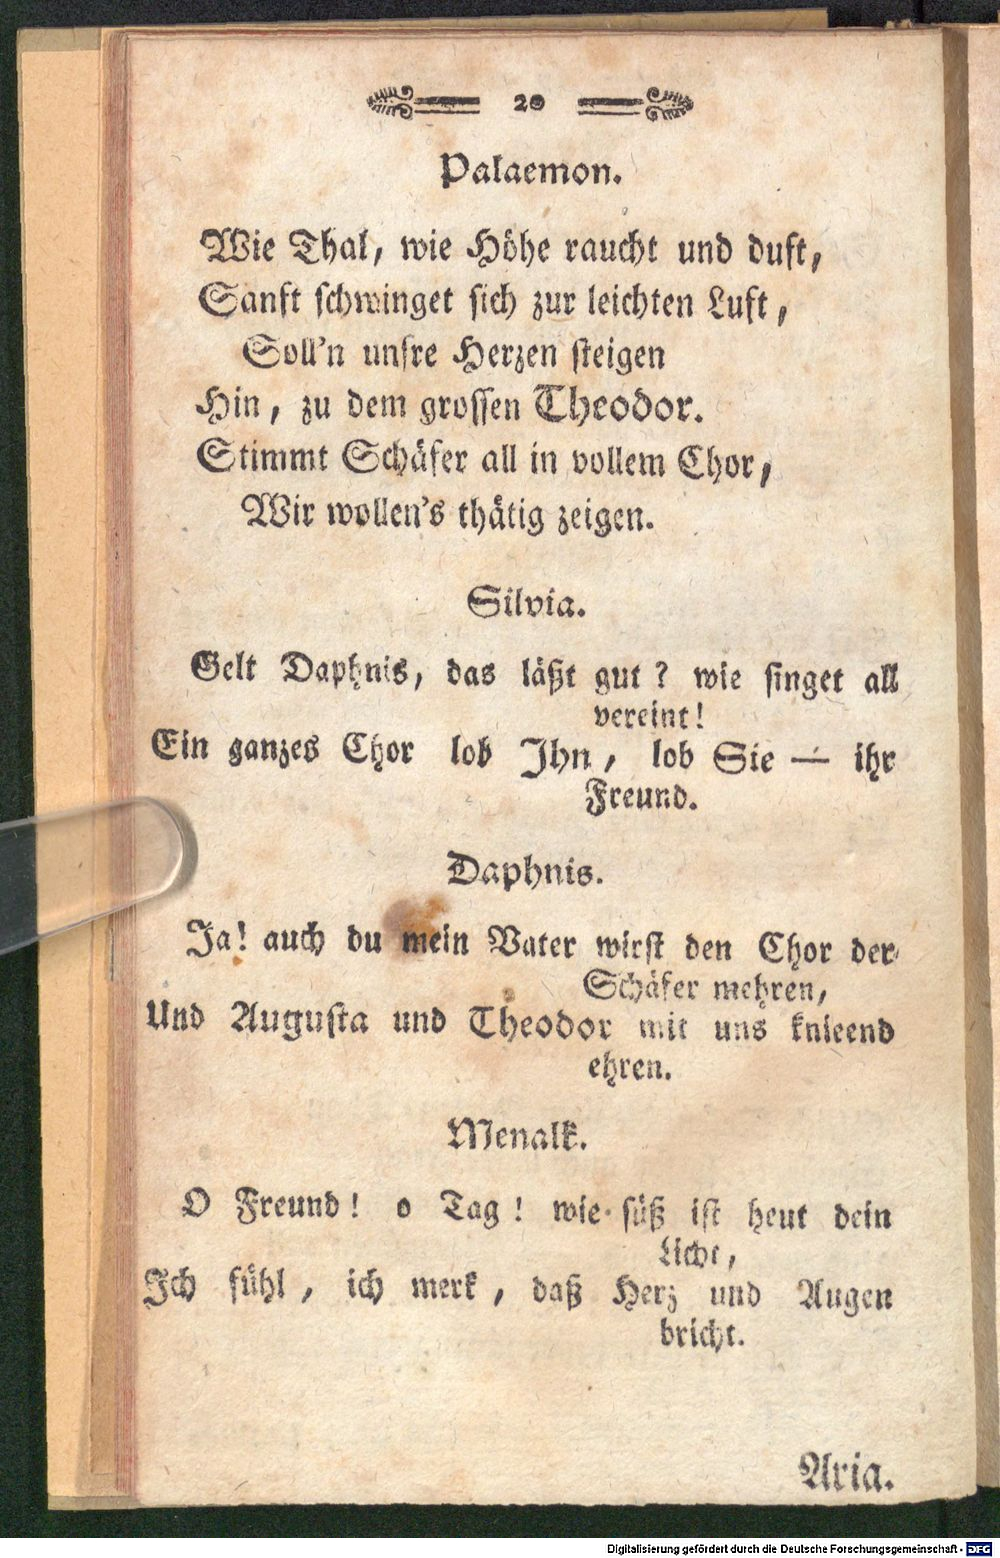 20
Palaemon.
Wie Thal, wie Höhe raucht und duft,
Sanft schwinget sich zur leichten Luft,
Soll'n unsre Herzen steigen
Hin, zu dem grossen Theodor.
Stimmt Schäfer all in vollem Chor,
Wir wollen's thätig zeigen.
Silvia.
Gelt Daphnis, das läßt gut? wie singet all
vereint!
Ein ganzes Chor lob Ihn, lob Sie — ihr
Freund.
Daphnis.
Ja! auch du mein Vater wirst den Chor der
Schäfer mehren,
Und Augusta und Theodor mit uns knieend
ehren.
Menalk.
O Freund! o Tag! wie süß ist heut dein
Licht,
Ich fühl, ich merk, daß Herz und Augen
bricht.
Aria.
Digitalisierung gefördert durch die Deutsche Forschungsgemeinschaft - DFG